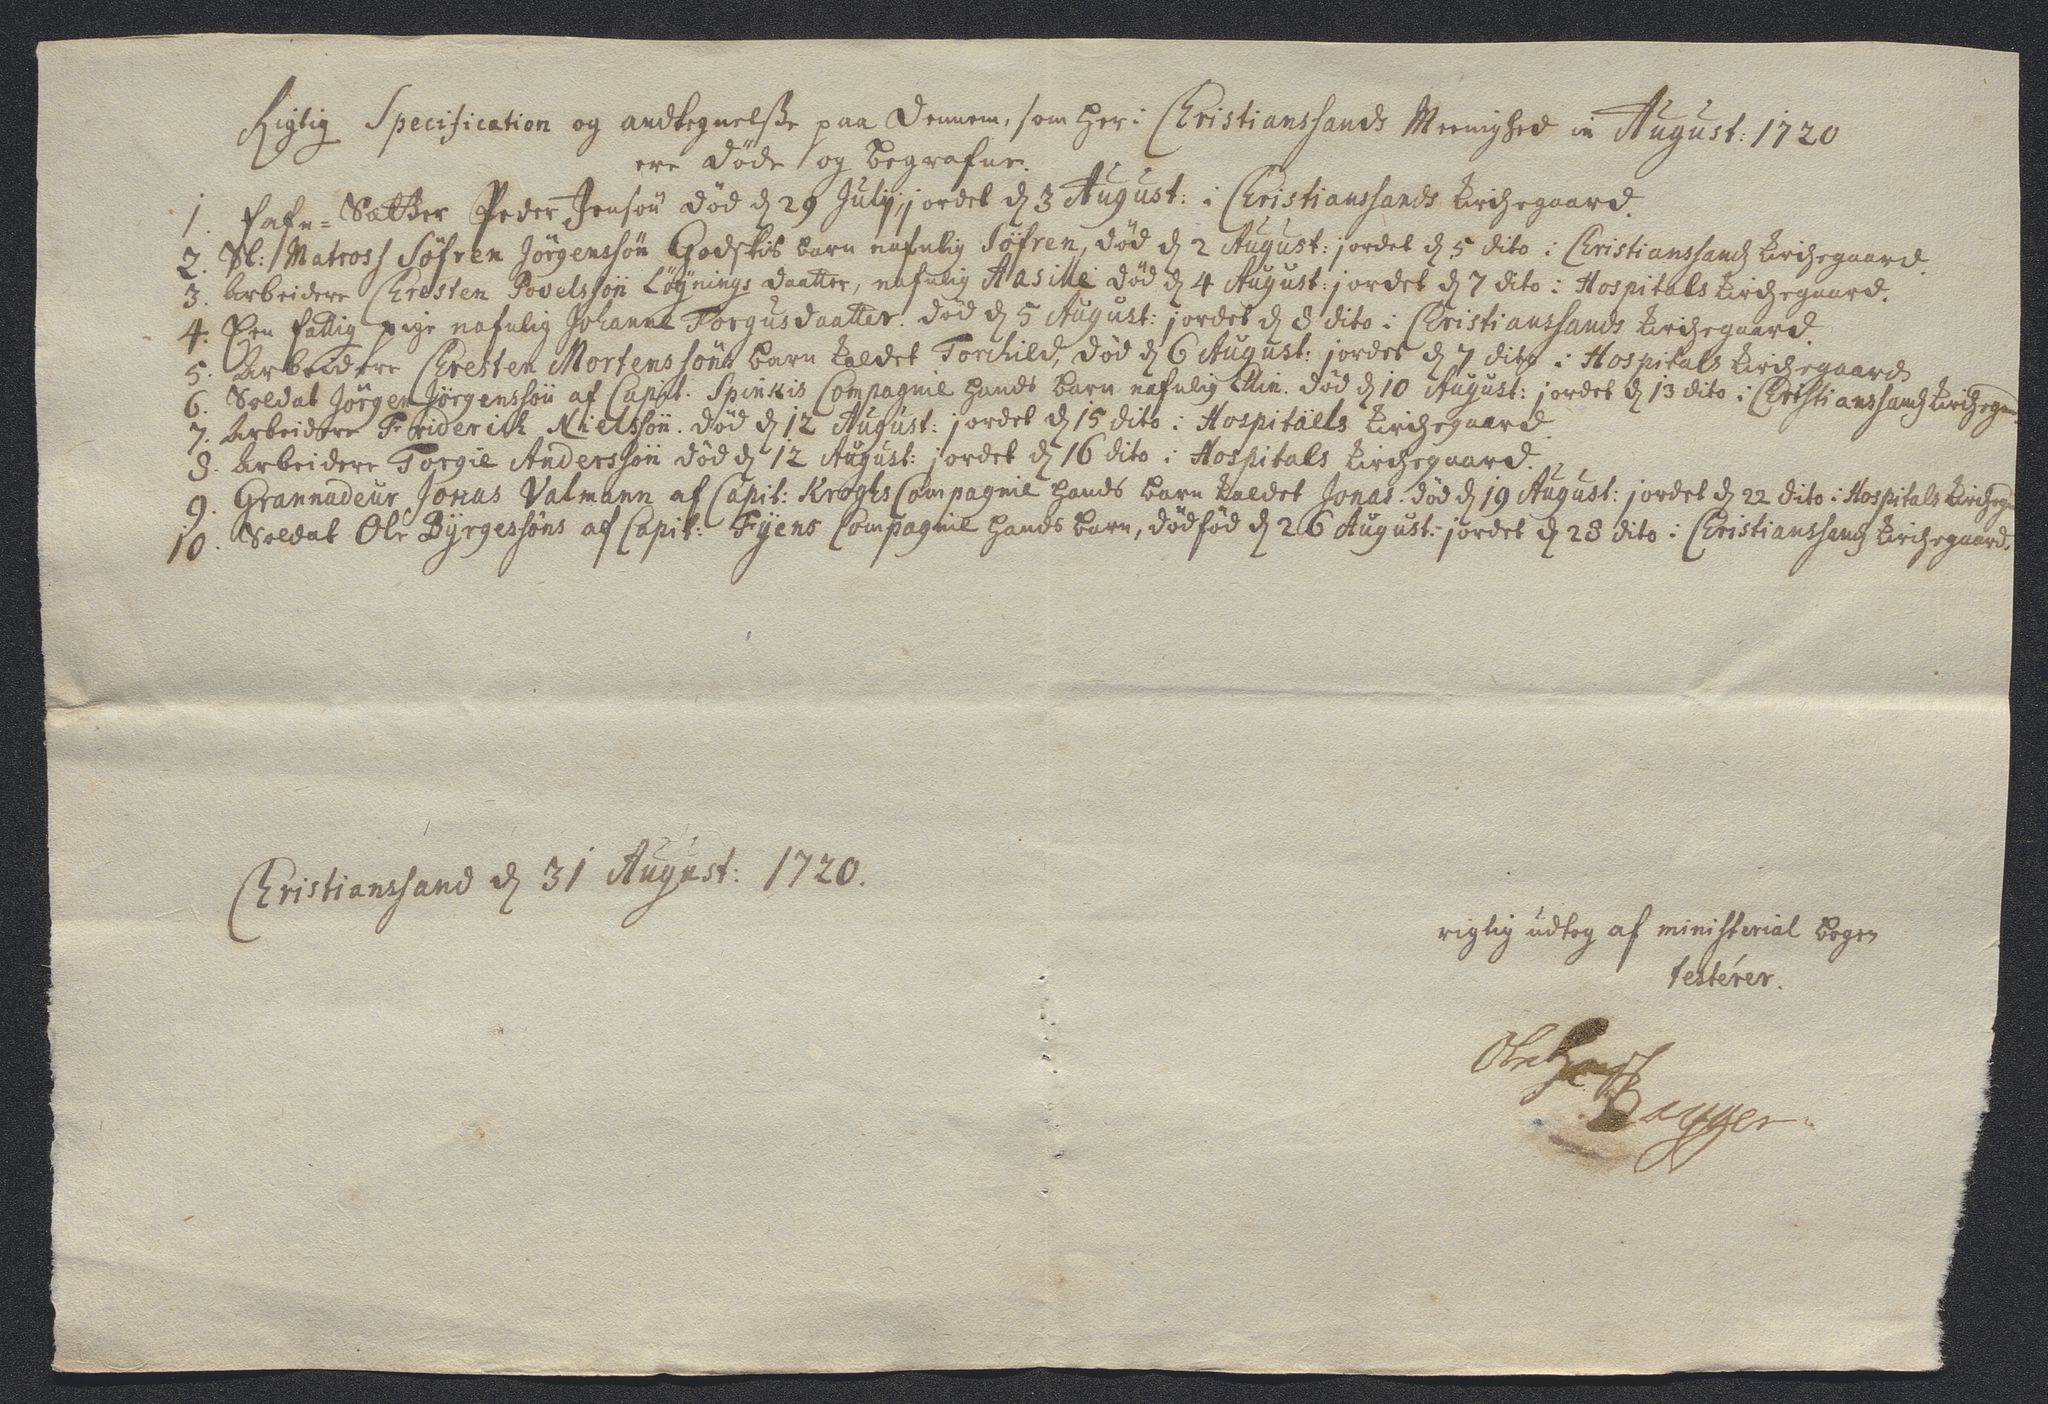 Rigtig Specification og andtegnelsße paa dennem, som her i Christianssands Meenighed in August: 1720
ere døde og begrafne.
1. Hafn=Sætter Peder Jensøn død d 29 Julij, jordet d 3 August: i Christianssands Kirchegaard.
2. Sl: Matross Søfren Jørgenssøn Godskis barn nafnlig Søfren, død d 2 August: jordet d 5 dito i Christianssands Kirchegaard.
3. Arbeidere Chresten Povelssøn Løynings daatter, nafnlig Aasille død d 4 August: jordet d 7 dito i Hospitals Kirchegaard.
4. Een fattig pige nafnlig Johanne Torgusdaatter. død d 5 August: jordet d 8 dito i Christianssands Kirchegaard.
5. Arbeidere Chresten Mortenssøns barn kaldet Torchild, død d 6 August: jordet d 7 dito i Hospitals Kirchegaard
6. Soldat Jørgen Jørgenssøn af Capit. Spinkis Compagnie hands barn nafnlig Elin. død d 10 August: jordet d 13 dito i Christianssands Kirchegaa
7. Arbeidere Friderich Nielssøn. død d 12 August: jordet d 15 dito i Hospitalls Kirchegaard.
8. Arbeidere Torgie Anderssøn død d 12 August: jordet d 16 dito i Hospitals Kirchegaard.
9. Grannadeur Jonas Valmann af Capit: Kroghs Compagnie hands barn kaldet Jonas. død d 19 August: jordet d 22 dito i Hospitals Kirchega
10. Soldat Ole Byrgessøns af Capit: Fyens Compagnie hands barn, dødfød d 26 August: jordet d 28 dito i Christianssands Kirchegaard.
Christianssand d 31 August: 1720.
rigtig udtog af ministerial bogen
testérer.
Ole
Bagger